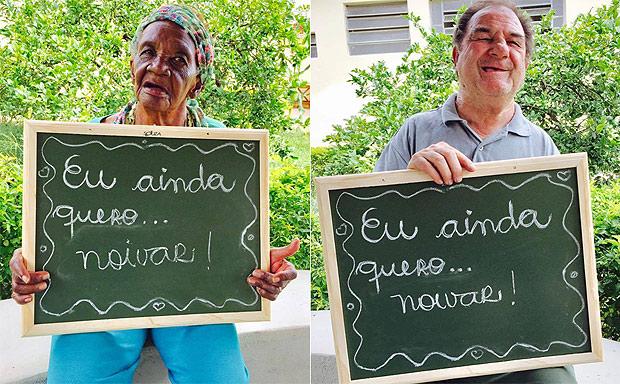 Eu ainda
quero...
noivar!
Eu ainda
quero...
noivar!